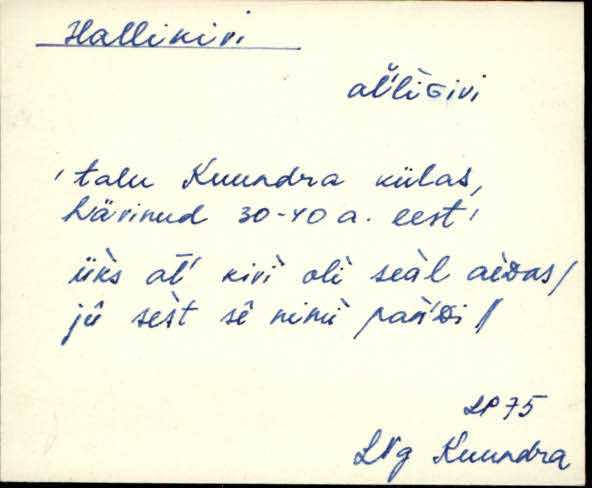 Hallikivi
al̆'liɢivi
'talu Kuundra külas,
hävinud 30-40 a. eest'
üks al̄' kivì olì seàl aèDas/
jū sèst sē nimì pań'Di //
LP 75
LNg Kuundra